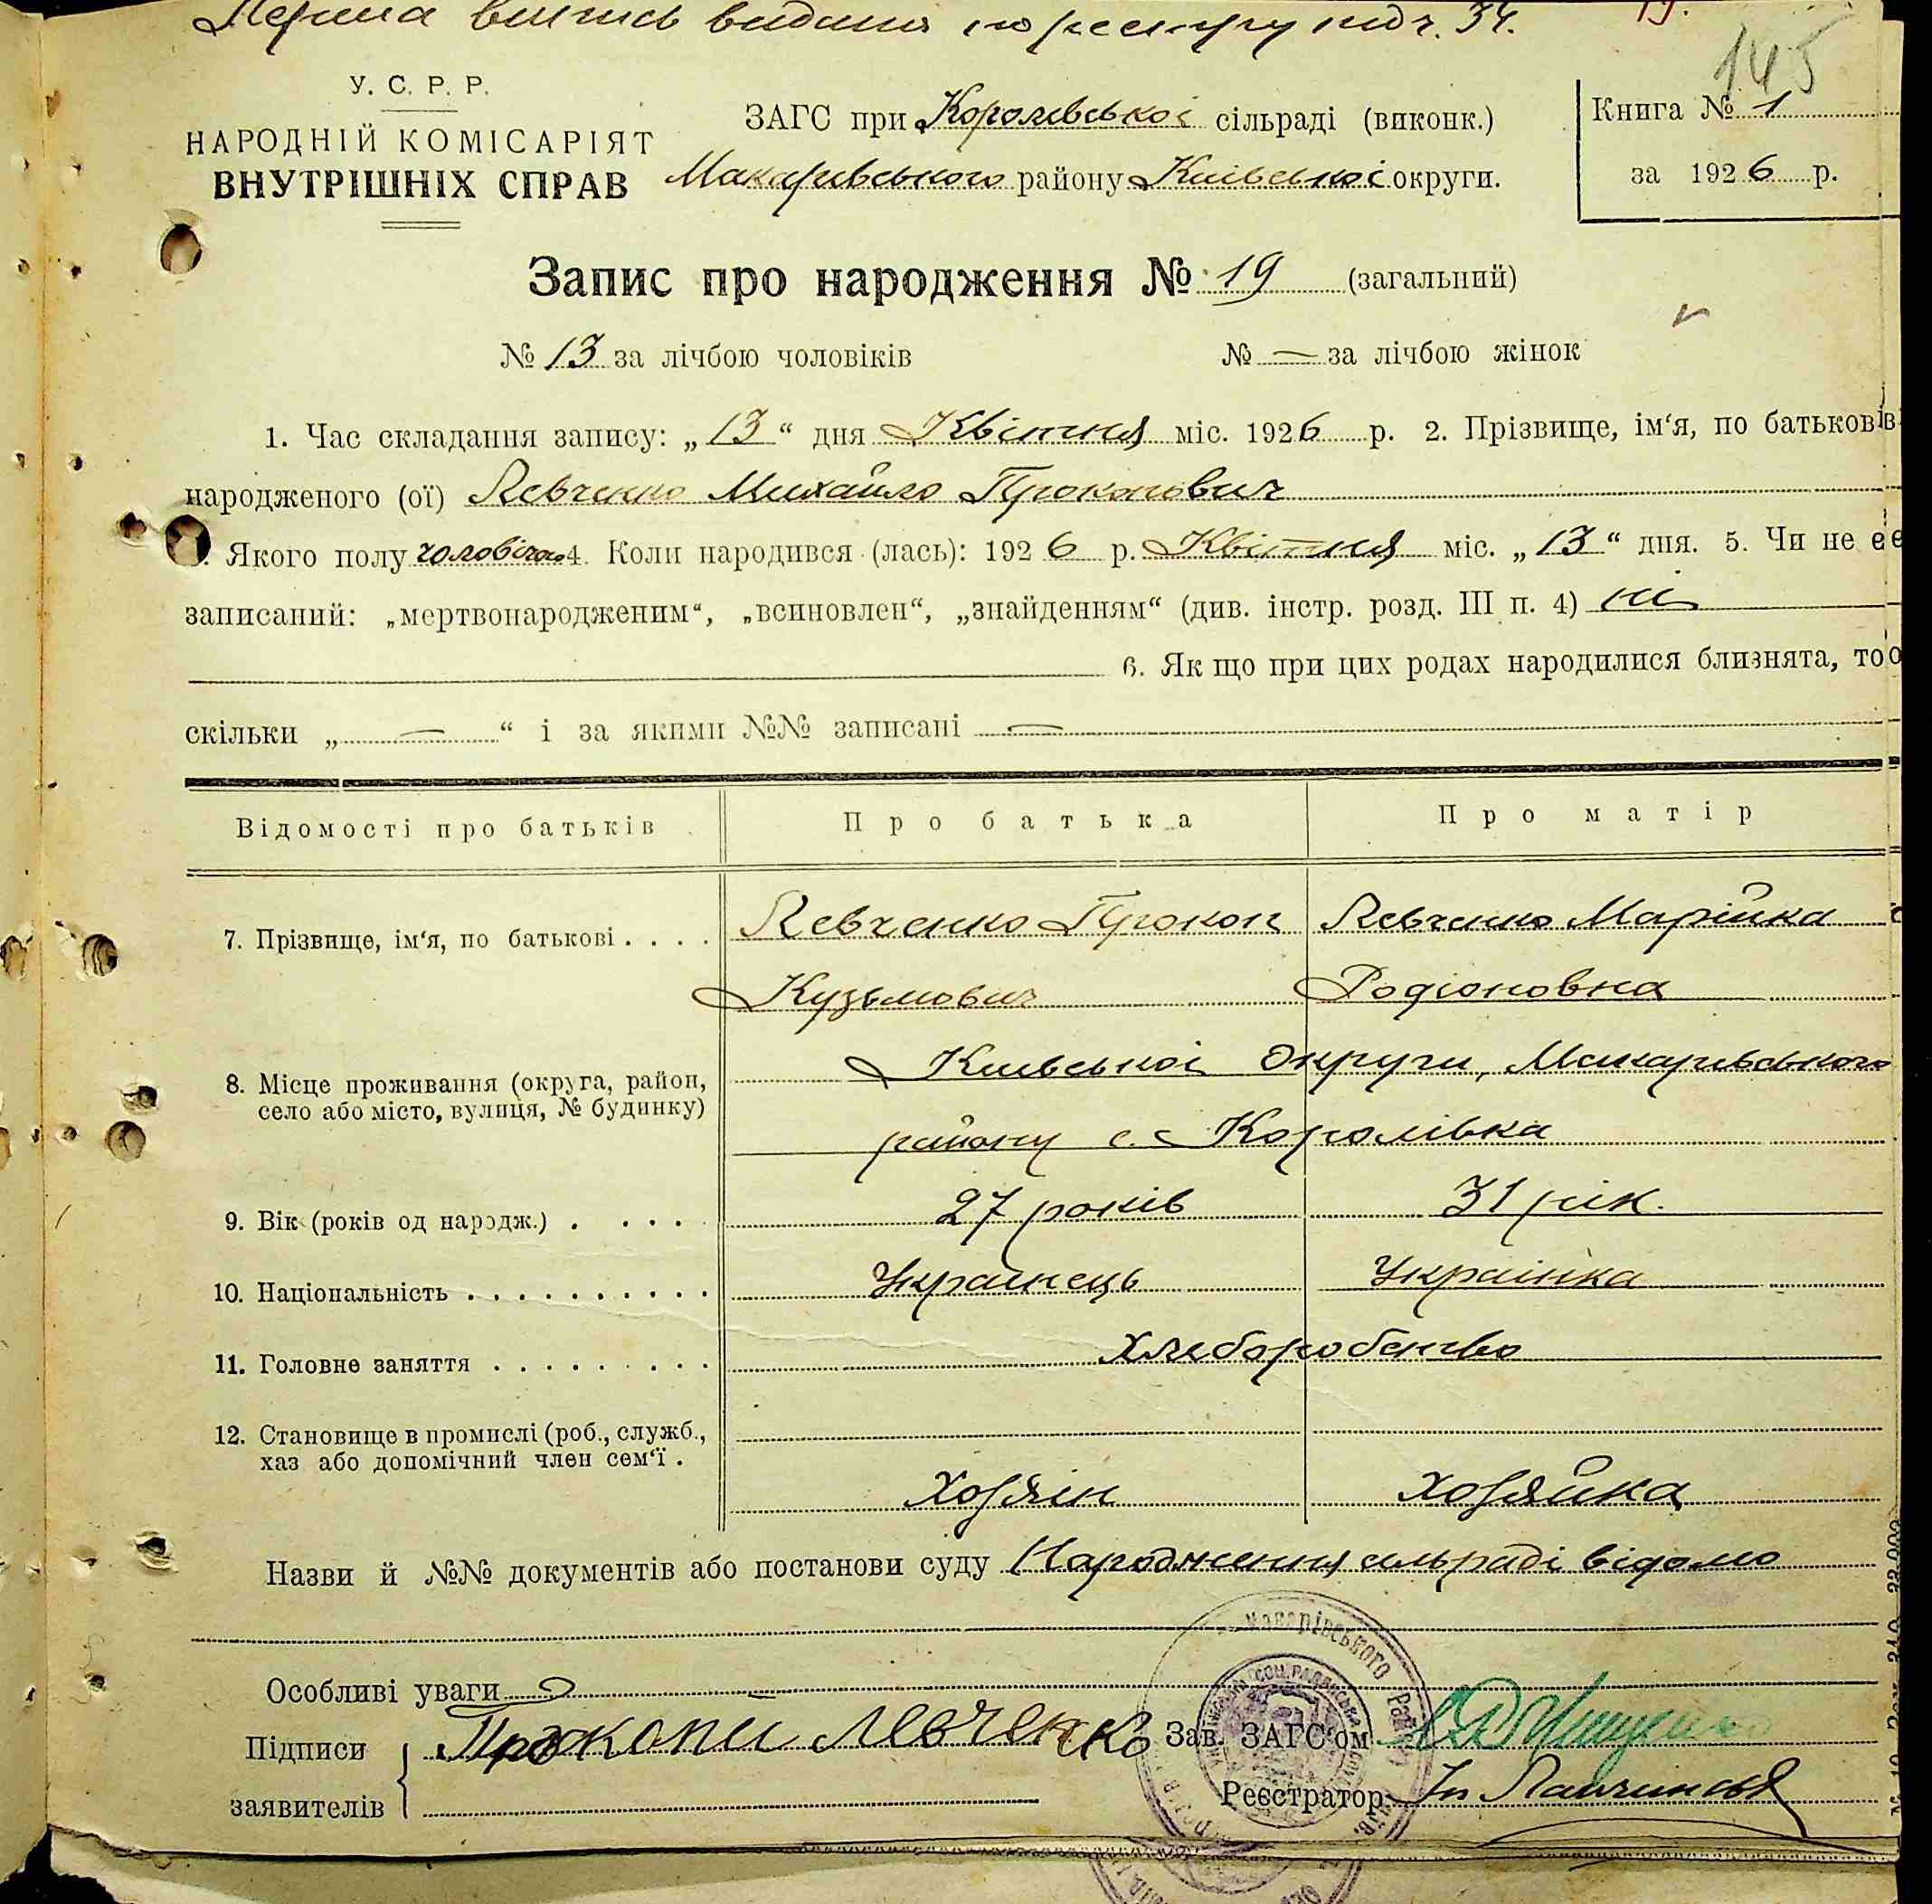 Перша випись видана по реестру під ч. 34.
19.
145
У. С. Р. Р.
НАРОДНІЙ КОМІСАРІЯТ
ВНУТРІШНІХ СПРАВ
ЗАГС при Королівської сільраді (виконк.)
Макарівського району Київської округи.
Книга № 1
за 1926 р.
Запис про народження № 19 (загальний)
№ 13 за лічбою чоловіків № — за лічбою жінок
1. Час складання запису: „13“ дня Квітня міс. 1926 р. 2. Прізвище, ім‘я, по батькові
народженого (ої) Левченко Михайло Прокопович
Якого полу чоловічого 4. Коли народився (лась): 1926 р. Квітня міс. „13“ дня. 5. Чи не є
записаний: „мертвонародженим“, „всиновлен“, „знайденням“ (див. інстр. розд. III п. 4) ні
6. Як що при цих родах народилися близнята, то
скільки „—“ і за якими №№ записані —
Відомості про батьків Про батька Про матір
7. Прізвище, ім‘я, по батькові . . . . Левченко Прокоп Левченко Марійка
Кузьмович Родіоновна
8. Місце проживання (округа, район, Київської Округи, Макарівського
село або місто, вулиця, № будинку) району с. Королівка
9. Вік (років од народж.) . . . . . 27 років 31 рік.
10. Національність . . . . . . . . . . Українець Українка
11. Головне заняття . . . . . . . . . Хліборобство
12. Становище в промислі (роб., служб.,
хаз або допомічний член сем‘ї .
Хозяін Хозяйка
Назви й №№ документів або постанови суду Народження сільраді відомо
Особливі уваги
Підписи Прокопи Левченко Зав. ЗАГС‘ом
заявителів Реєстратор
Макарівського